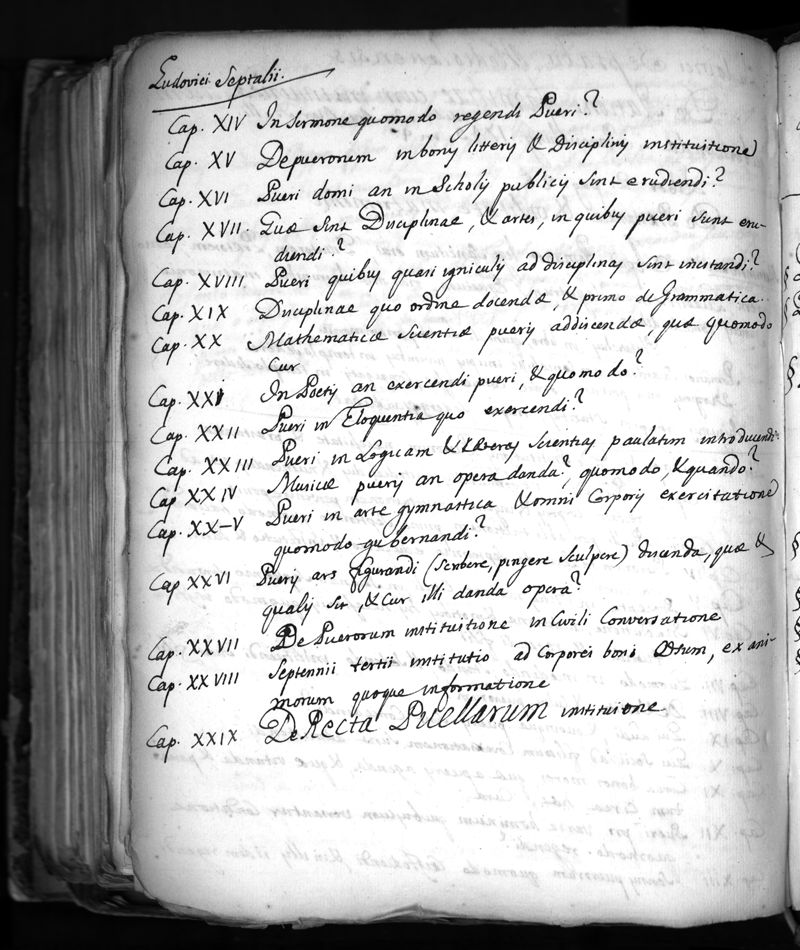 Ludovici Septalii.
Cap. XIV In Sermone quomodo regendi Pueri?
Cap. XV De puerorum in bonis litteris & Disciplinis instituitione
Cap. XVI Pueri domi an in Scholis publicis sint erudiendi?
Cap. XVII. Quæ sint Disciplinae, & artes, in quibus pueri sunt eru-
diendi?
Cap. XVIII Pueri quibus quasi igniculis ad disciplinas sint incitandi?
Cap. XIX Disciplinae quo ordine docendæ, & primo de Grammatica.
Cap. XX Mathematicæ Scientiæ pueris addiscendæ, quæ quomodo
Cur
Cap. XXI In Poetis an exercendi pueri, & quomodo?
Cap. XXII Pueri in Eloquentia quo exercendi?
Cap. XXIII Pueri in Logicam & Scientias paulatim introducendi.
Cap XXIV Musicæ pueris an opera danda?, quomodo, & quando?
Cap. XX-V Pueri in arte gymnastica & omni Corporis exercitatione
quomodo gubernandi?
Cap XXVI Pueris ars figurandi (scribere, pingere sculpere) discenda, quæ &
qualis sit, & cur illi danda opera?
Cap. XXVII De Puerorum instituitione in Civili Conversatione
Cap. XXVIII Septennii tertii institutio ad Corporeis bonis , ex ani-
morum quoque informatione
Cap. XXIX De Recta Puellarum instituione